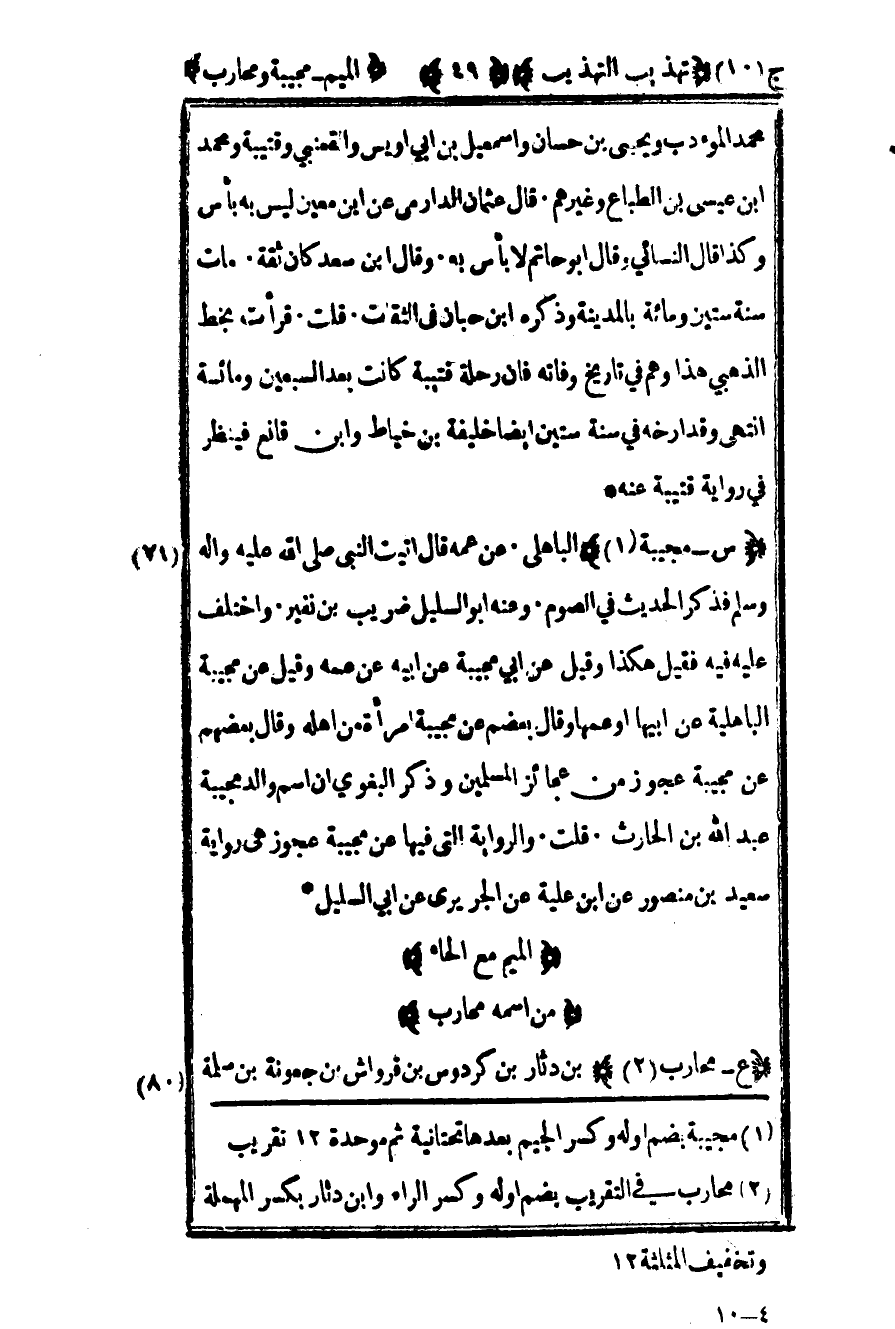 ج (١٠) ﴿ تهذيب التهذيب ﴾ ﴿ ٤٩ ﴾ ﴿ الميم - مجيبة ومحارب ﴾
محمد الموءدب ويحيى بن حسان واسمعيل بن ابي اويس والقعنبي وقتيبة ومحمد
ابن عيسى بن الطباع وغيرهم · قال عثمان الدارمى عن ابن معين ليس به بأس
وكذا قال النسائي وقال ابو حاتم لا بأس به · وقال ابن سعد كان ثقة · مات
سنة ستين ومائة بالمدينة وذكره ابن حبان فى الثقات · قلت · قرأت بخط
الذهبي هذا وهم في تاريخ وفاته فان رحلة قتيبة كانت بعد السبعين ومائسة
انتهى وقد ارخه في سنة ستين ايضا خليفة بن خياط وابن قانع فينظر
في رواية قتيبة عنه *
﴿ س - مجيبة (١) ﴾ الباهلى · عن عمه قال اتيت النبى صلى الله عليه واله (٧٩)
وسلم فذكر الحديث في الصوم · وعنه ابو السليل ضريب بن نفير · واختلف
عليه فيه فقيل هكذا وقيل عن ابي مجيبة عن ابيه عن عمه وقيل عن مجيبة
الباهلية عن ابيها او عمها وقال بعضهم عن مجيبة امرأة من اهله وقال بعضهم
عن مجيبة عجوز من عجائز المسلمين وذكر البغوي ان اسم والد مجيبة
عبد الله بن الحارث · قلت · والرواية التى فيها عن مجيبة عجوز هى رواية
سعيد بن منصور عن ابن علية عن الجريرى عن ابي السليل *
﴿ الميم مع الحاء ﴾
﴿ من اسمه محارب ﴾
﴿ ع - محارب (٢) ﴾ بن دثار بن كردوس بن قرواش بن جعونة بن سلمة (٨٠)
(١) مجيبة بضم اوله وكسر الجيم بعدها تحتانية ثم موحدة ١٢ تقريب
(٢) محارب في التقريب بضم اوله وكسر الراء وابن دثار بكسر المهملة
وتخفيف المثلثة ١٢
٤-١٠